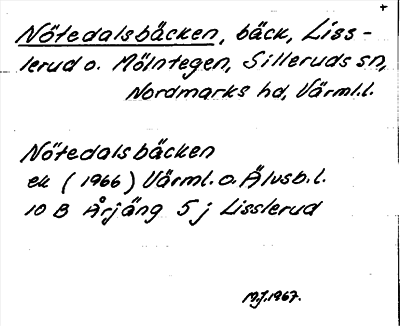 +
Nötedalsbäcken, bäck, Liss-
lerud o. Mölntegen, Silleruds sn,
Nordmarks hd, Värml.l.
Nötedalsbäcken
ek (1966) Värml. o. Älvsb.l.
10 B Årjäng 5 j Lisslerud
1967.